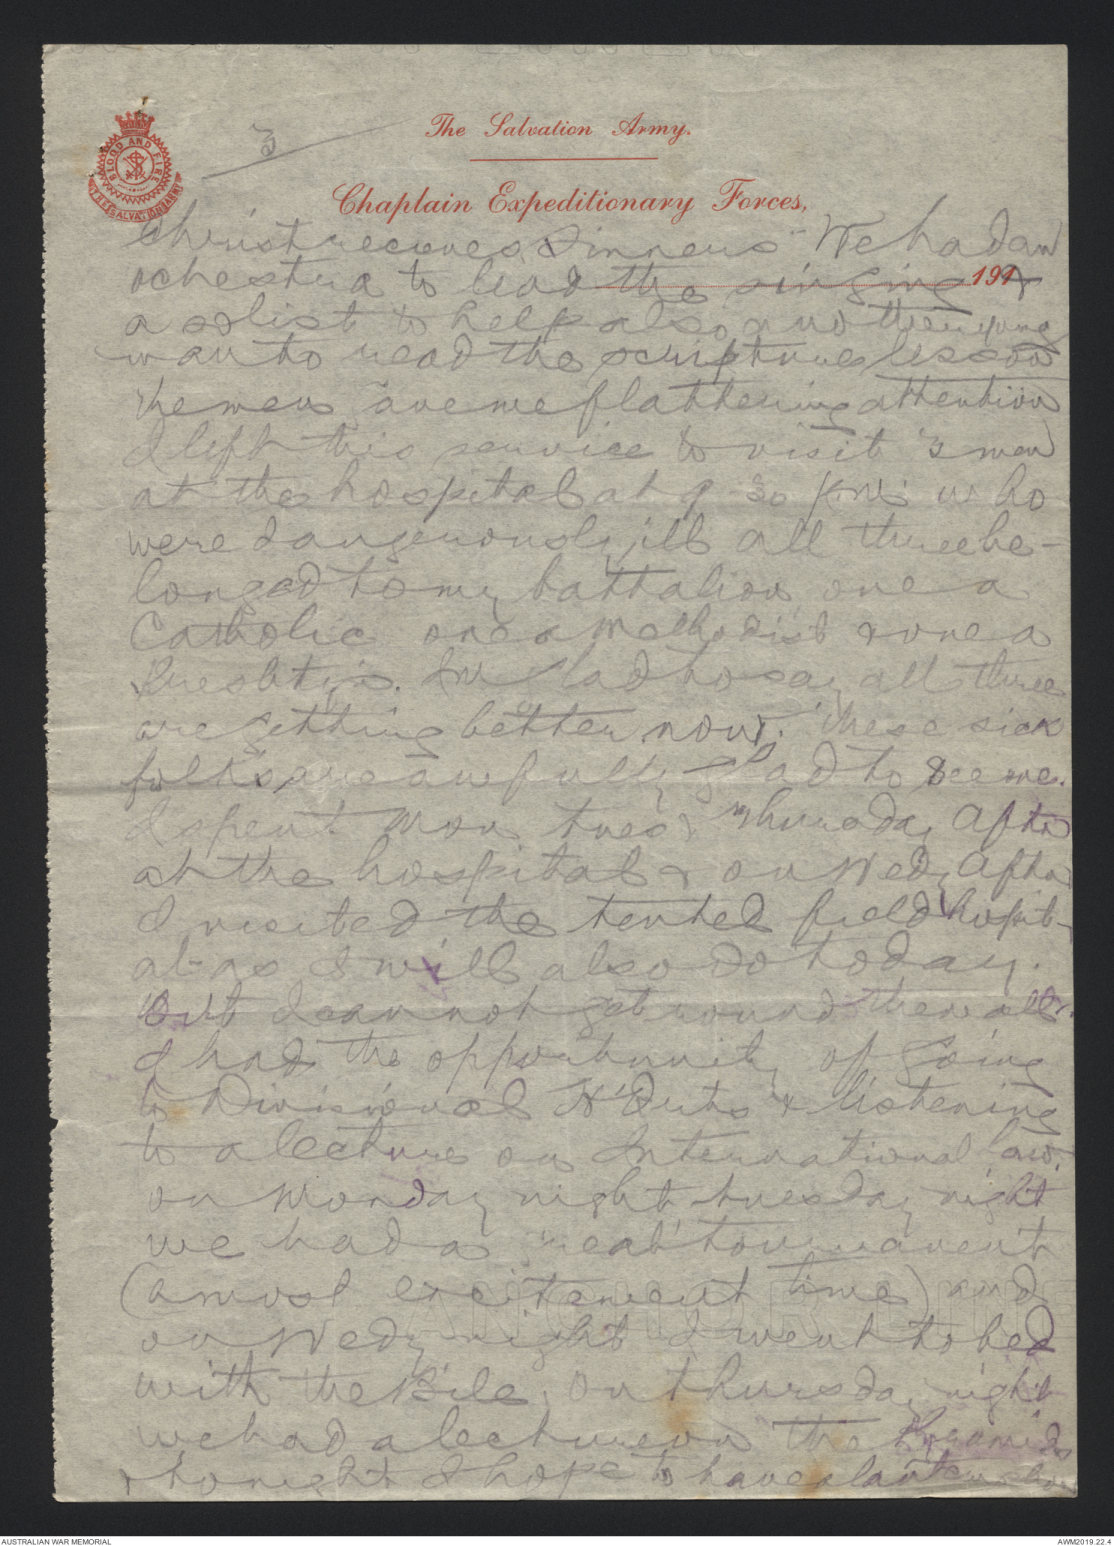 3
The Salvation Army.
BLOOD AND FIRE
THE SALVATION ARMY
Chaplain Expeditionary Forces,
191
Christ receives Sinners" We had an
ochestra to lead the singing &
a solist to help also, and then young
man to read the scripture lesson
The men gave me flattering attention
I left this service to visit 3 men
at the hospital at 9 30 pm who
were dangerously ill all three be-
longed to my battalion one a
Catholic one a Methodist & one a
Presbtyn. I'm glad to say all three
are getting better now. These sick
folks are awfully glad to see me.
I spent Mon tues & Thursday Aftn
at the hospital & on Wedy Aftn
I visited the tented field hospit-
al as I will also do today.
But I cannot get round them all.
I had the opportunity of going
to Divisional H'Qrts & listening
to a lecture on International law,
on Monday night tuesday night
we had a real tournament
(a most excitement time) and
on Wedy night I went to bed
with the Bile, on thursday night
we had a lecture on the Pyramids
& tonight I hope to have a lantern
AUSTRALIAN WAR MEMORIAL
AWM2019.22.4